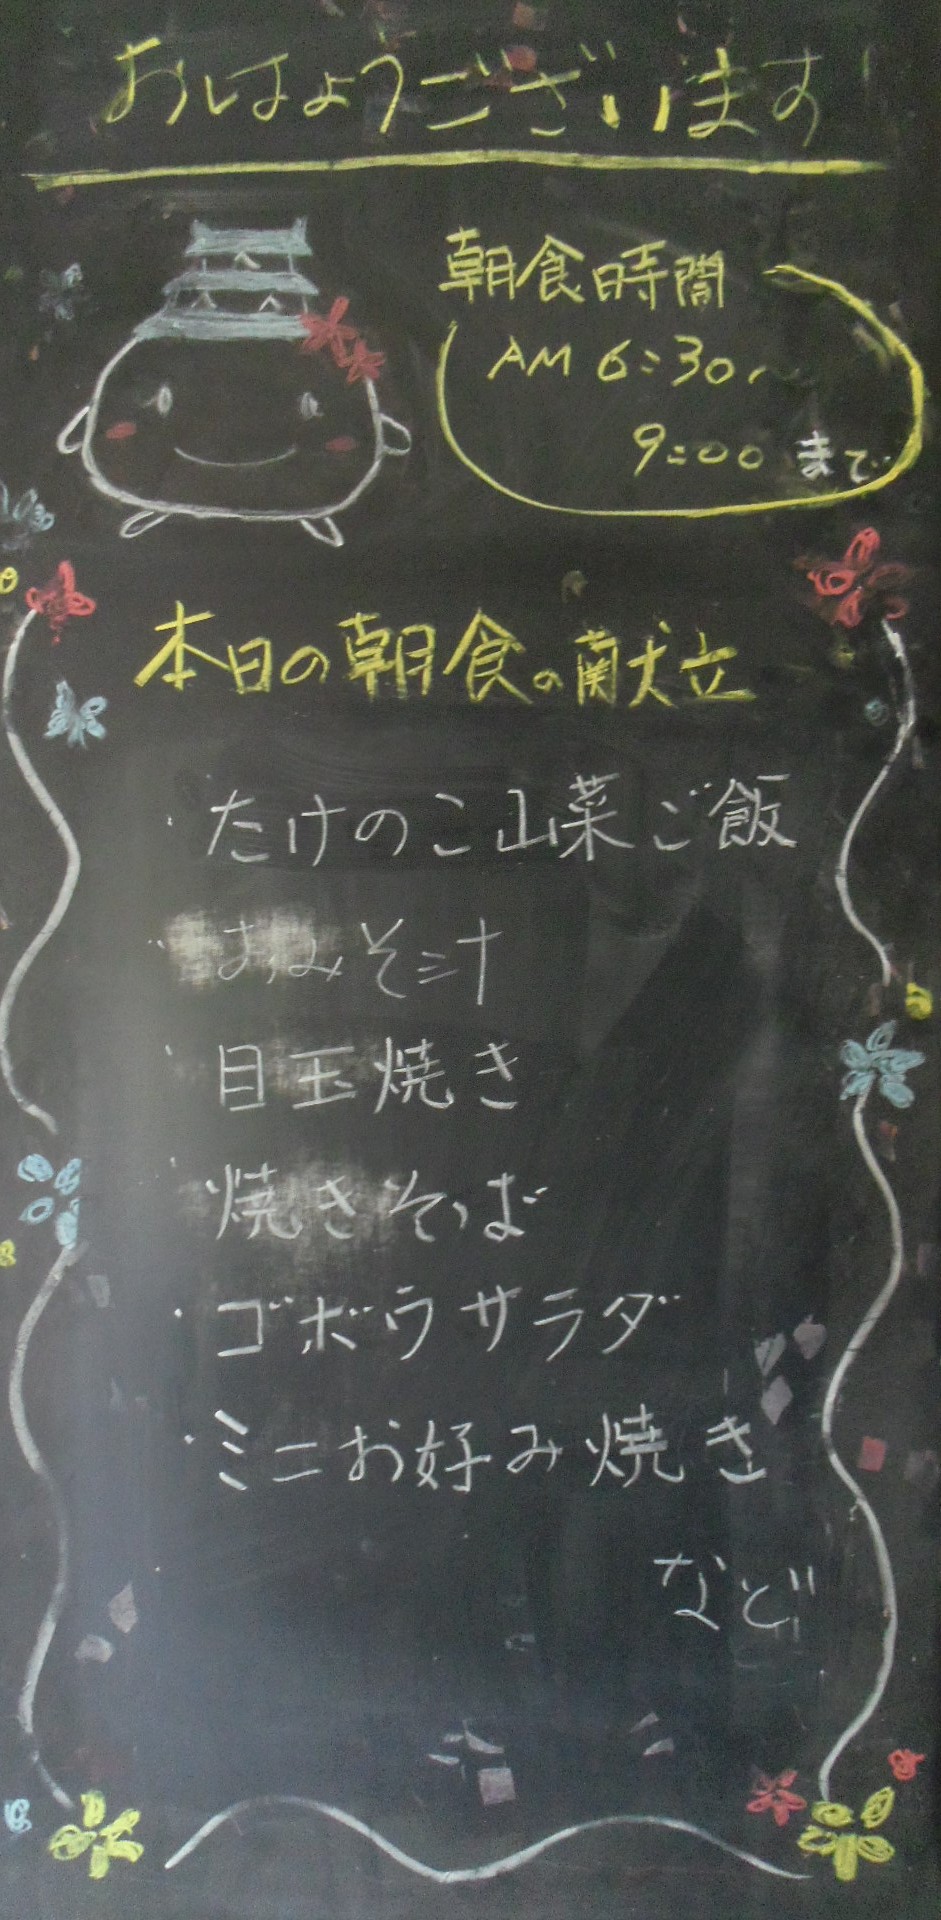 おはようございます
朝食時間
AM 6:30〜
9:00 まで
本日の朝食の献立
・たけのこ山菜ご飯
・おみそ汁
・目玉焼き
・焼きそば
・ゴボウサラダ
・ミニお好み焼き
など